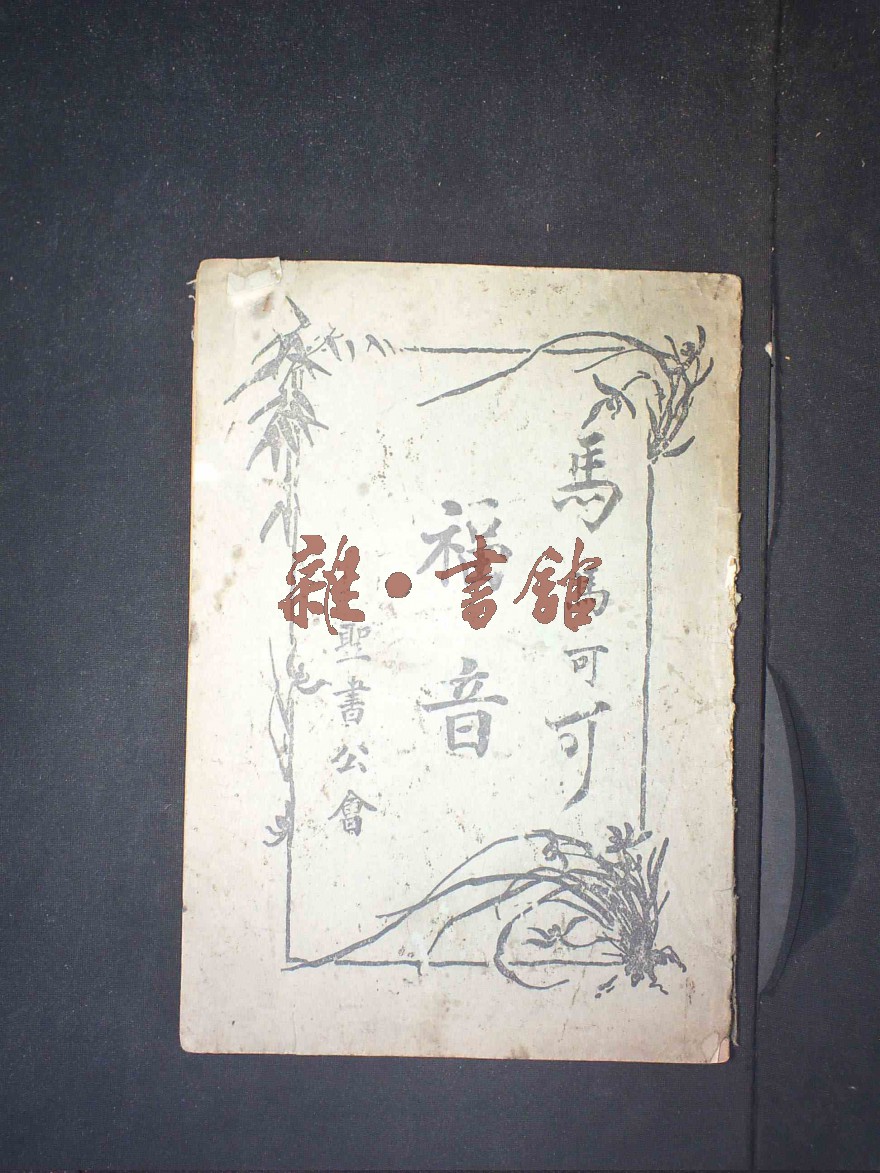 馬馬可可
福音
聖書公會
雜·書館